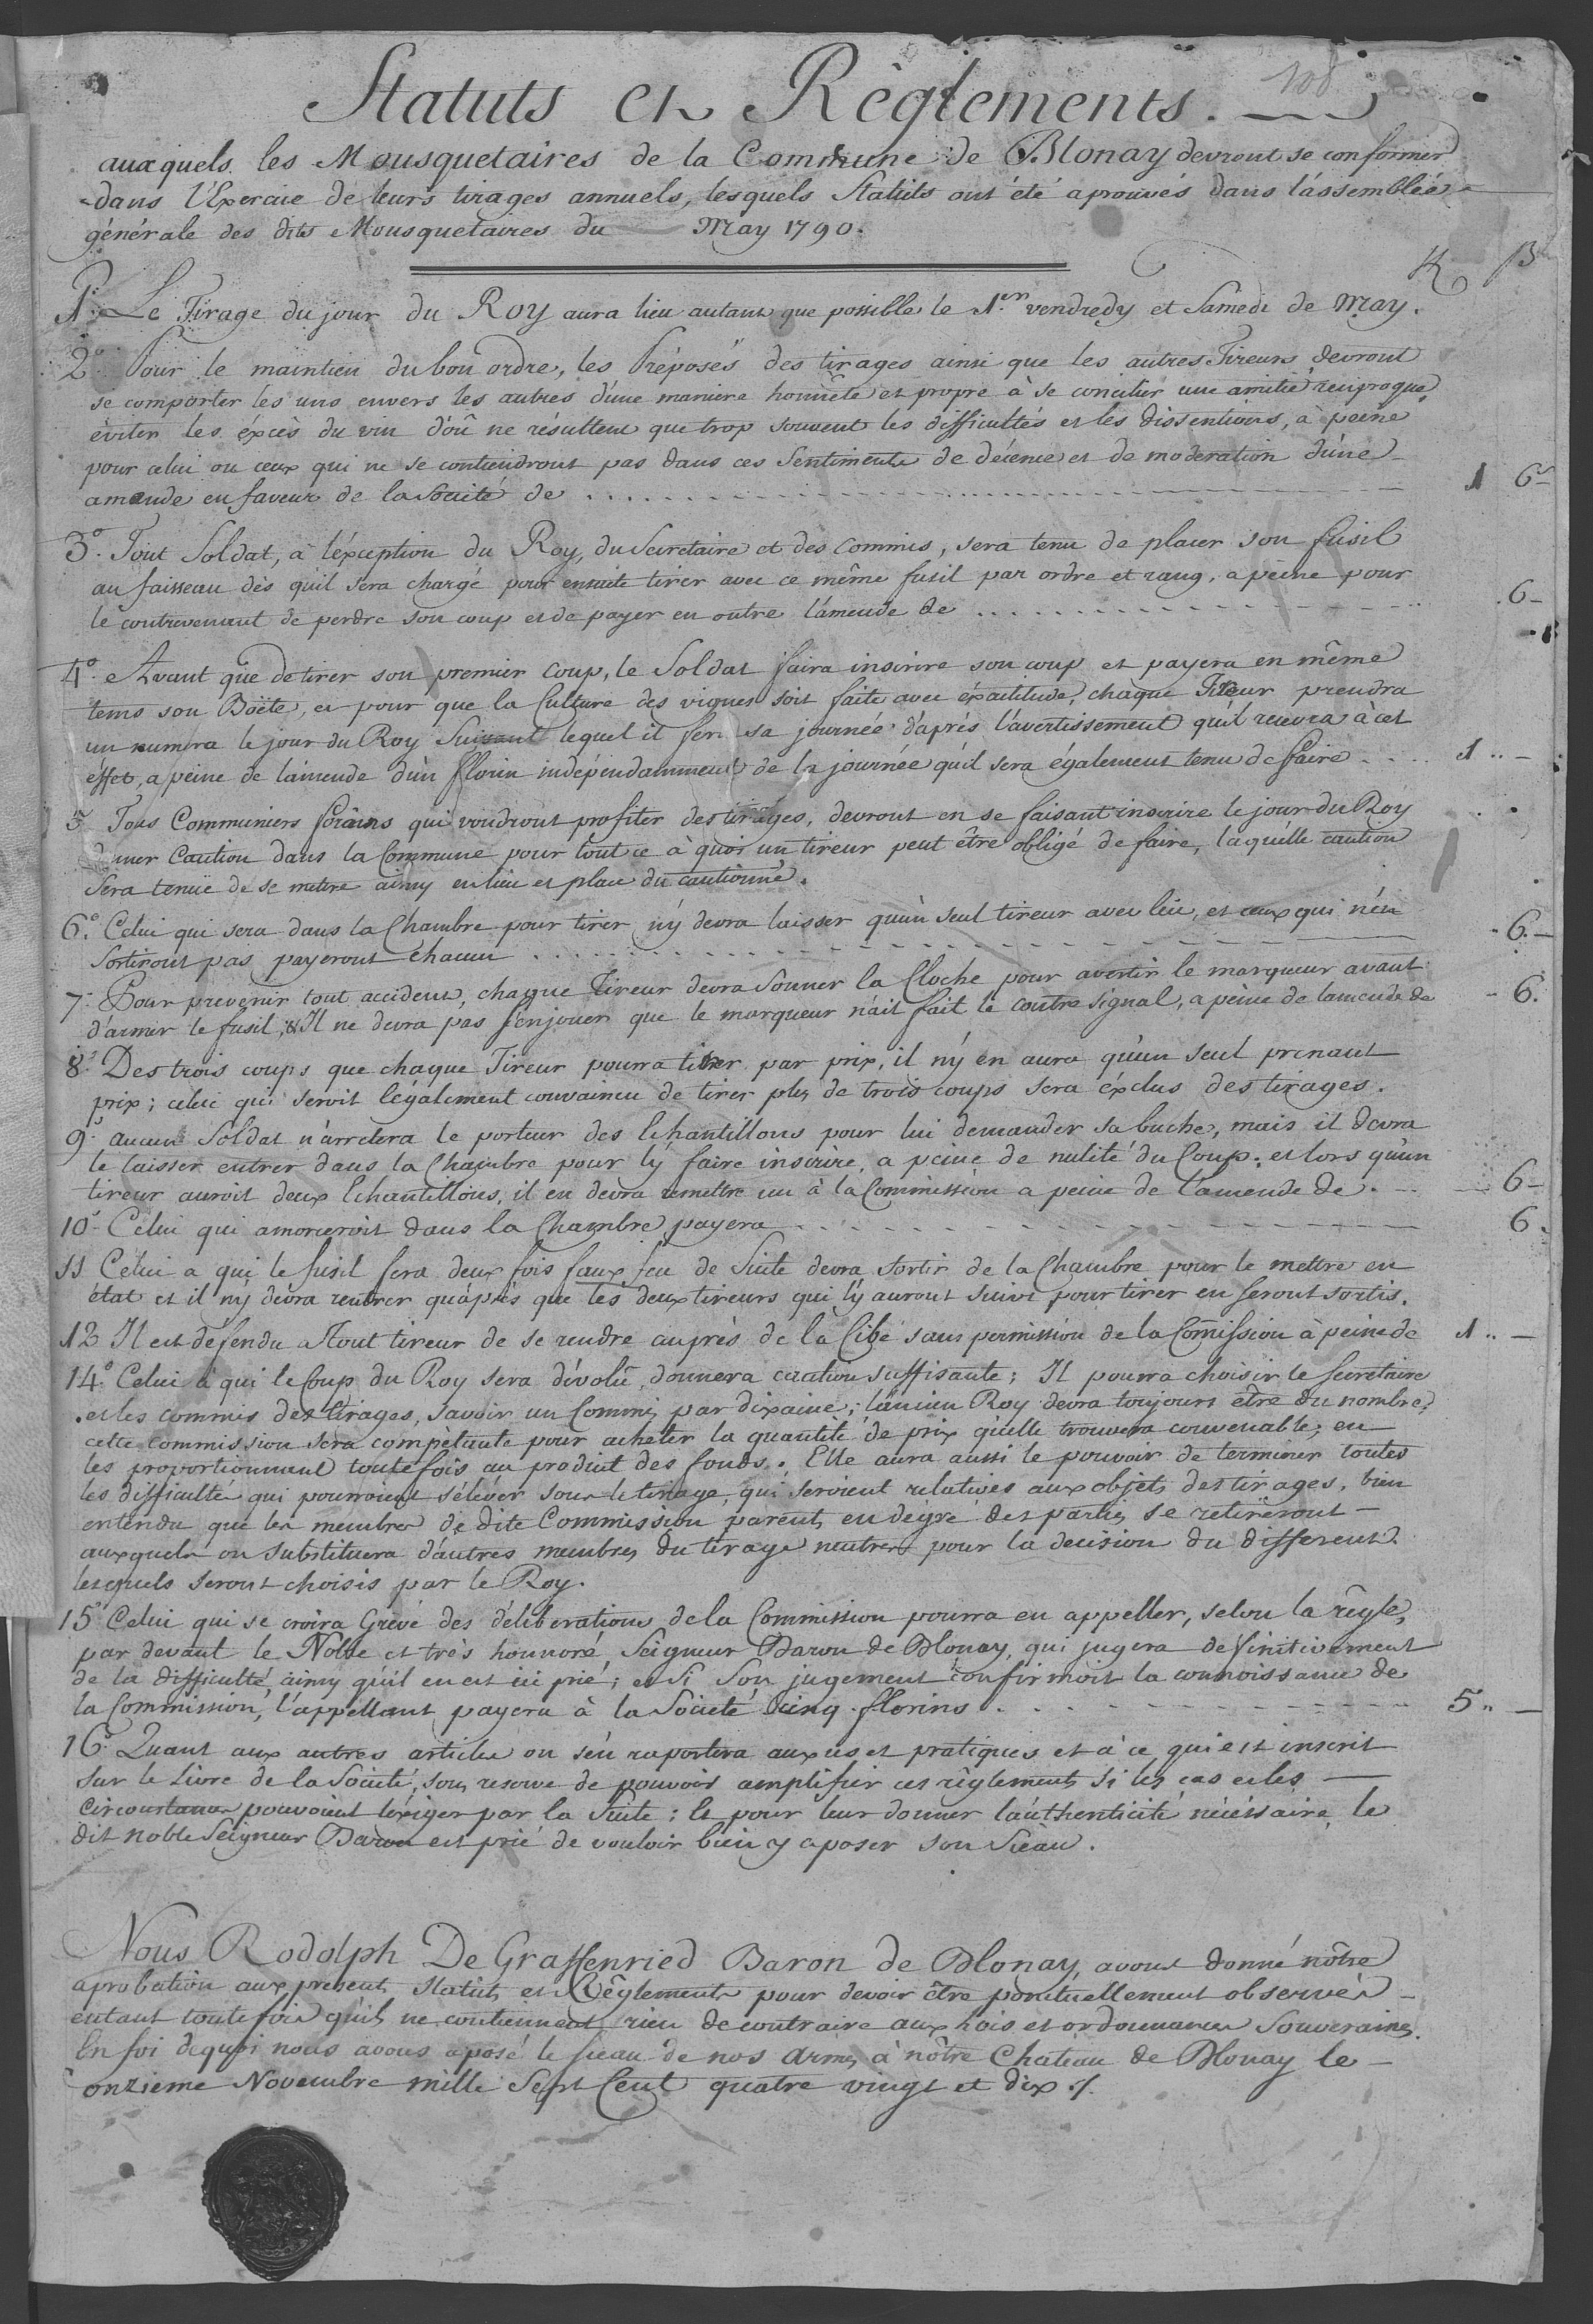 108
Statuts et Règlements.
auxquels les Mousquetaires de la Commune de Blonay devront se conformer
dans l'Exercice de leurs tirages annuels, lesquels Statuts ont été aprouvés dans l'assemblée
générale des dits Mousquetaires du May 1790.
1° Le Tirage du jour du Roy aura lieu autant que possible le 1er vendredy et Samedi de May.
2° Pour le maintien du bon ordre, les Préposés des tirages ainsi que les autres Tireurs devront
se comporter les uns envers les autres d'une maniere honnête et propre à se concilier une amitié reciproque,
éviter les éxcès du vin d'où ne résultent que trop souvent les difficultés et les dissentions, à peine
pour celui ou ceux qui ne se contiendront pas dans ces Sentiments de décence et de moderation d'une
amande en faveur de la Société de 1 6 s
3° Tout Soldat, à l'éxception du Roy, du Secretaire et des Commis, sera tenu de placer son fusil
au faisseau dès qu'il sera chargé pour ensuite tirer avec ce même fusil par ordre et rang, a peine pour
le contrevenant de perdre son coup et de payer en outre l'amende de 6
4° Avant que de tirer son premier coup, le Soldat faira inscrire son coup et payera en même
tems son Boëte, et pour que la Culture des vignes soit faite avec éxactitude, chaque Tireur prendra
un numera le jour du Roy Suivant lequel il fera sa journée d'aprés l'avertissement qu'il recevra à cet
éffet, a peine de l'amende d'un florin indépendamment de la journée qu'il sera également tenu de faire 1
5 Tous Communiers forains qui voudront profiter des tirages, devront en se faisant inscrire le jour du Roy
donner Caution dans la Commune pour tout ce à quoi un tireur peut être obligé de faire, laquelle caution
Sera tenuë de se mettre ainsy en lieu et place du cautionné.
6° Celui qui sera dans la Chambre pour tirer n'y devra laisser qu'un seul tireur avec lui, et ceux qui n'en
Sortiront pas payeront chacun 6
7° Pour prevenir tout accident, chaque Tireur devra Sonner la Cloche pour avertir le marqueur avant
d'armer le fusil, & Il ne devra pas s'enjouer que le marqueur n'ait fait le contre signal, a peine de l'amende de 6
8° Des trois coups que chaque Tireur pourra tirer par prix, il n'y en aura qu'un seul prenant
prix; celui qui seroit légalement convaincu de tirer plus de trois coups sera éxclus des tirages.
9° aucun Soldat n'arretera le porteur des Echantillons pour lui demander sa buche, mais il devra
le laisser entrer dans la Chambre pour l'y faire inscrire, a peine de nulité du Coup; et lors qu'un
tireur auroit deux Echantillons, il en devra remettre un à la Commission a peine de l'amende de 6
10° Celui qui amorceroit dans la Chambre payera 6
11 Celui a qui le fusil fera deux fois faux feu de Suite devra Sortir de la Chambre pour le mettre en
état et il n'y devra rentrer qu'aprés que les deux tireurs qui l'y auront suivi pour tirer en seront sortis.
12 Il est defendu a tout tireur de se rendre auprès de la Cible sans permission de la Comission à peine de 1
14° Celui à qui le Coup du Roy sera dévolu, donnera caution suffisante; Il pourra choisir le Secretaire
et les commis des tirages, savoir un Commis par dixaine; l'ancien Roy devra toujours être du nombre;
cette commission sera compètante pour acheter la quantité de prix qu'elle trouvera convenable, en
les proportionnant toutefois au produit des fonds. Elle aura aussi le pouvoir de terminer toutes
les difficultés qui pourroient s'élever sous le tirage, qui seroient relatives aux objets des tirages, bien
entendu que les membres de dite Commission parents en dégré des parties se retireront
auxquels on Substituera d'autres membres du tirage neutres pour la decision du different
lesquels seront choisis par le Roy.
15° Celui qui se croira Grévé des déliberations de la Commission pourra en appeller, selon la régle,
par devant le Noble et très honnoré Seigneur Baron de Blonay, qui jugera définitivement
de la difficulté ainsy qu'il en est ici prié; et Si Son jugement confirmoit la connoissance de
la Commission, l'appellant payera à la Société Cinq florins 5
16° Quant aux autres articles on s'en raportera aux us et pratiques et à ce qui est inscrit
sur le Livre de la Société, sous reserve de pouvoir amplifier ces règlements si les cas et les
circonstances pouvoient l'éxiger par la Suite; Et pour leur donner l'authenticité nécéssaire, le
dit noble Seigneur Baron est prié de vouloir bien y aposer son Sceau.
Nous Rodolph De Graffenried Baron de Blonay, avons donné nôtre
aprobation aux presents Statuts et Règlements pour devoir être ponctuellement observés
entant toutefois qu'ils ne contiennent rien de contraire aux Lois et ordonnances Souveraines.
En foi de quoi nous avons aposé le sceau de nos armes à nôtre Chateau de Blonay le
onzieme Novembre mille Sept Cent quatre vingt et dix